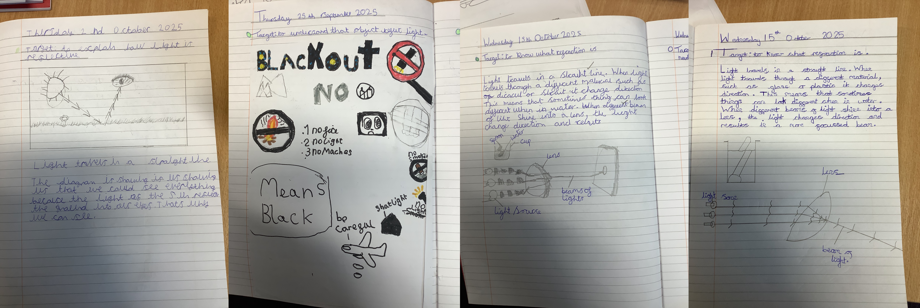 Thursday 2nd October 2025
Target to explain how light is
Light travels in a straight line
The diagram is showing
us that we can see everything
because the light of the Sun
the ground
we can see.
Thursday 25th September 2025
Target: to understand that object light.
BLACKOUT
NO
.1 no fire
.2 no light
.3 no Maches
Means
Black
be
caregal
shutlight
Wednesday 15th October 2025
Target: to Know what refraction is
Light travels in a straight line. When light
travels through a different material such as
it change direction
This means that sometimes thing can look
different when in water. When different beam
of light shine into a lens, the light
change direction and
cup
lens
beams of
light
Light Sources
Wednesday 15th October 2025
Target: to Know what refraction is.
Light travels in a straight line. When
light travels through a different material,
such as glass or plastic it changes
direction. This means that sometimes
things can look different when in water.
When different beams of light shine into a
lens, the light changes direction and
results in a more focussed beam.
lens
light
beam of
light